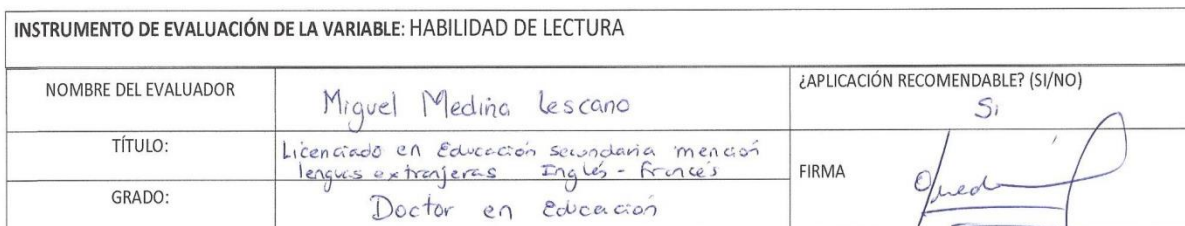 INSTRUMENTO DE EVALUACIÓN DE LA VARIABLE: HABILIDAD DE LECTURA
NOMBRE DEL EVALUADOR
Miguel Medina Lescano
¿APLICACIÓN RECOMENDABLE? (SI/NO)
Si
TÍTULO:
Licenciado en Educación secundaria mención
lenguas extranjeras Inglés - francés
FIRMA
GRADO:
Doctor en Educación